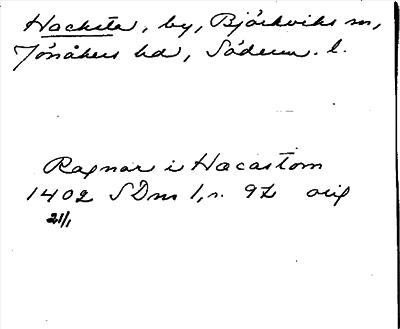 Hacksta, by, Björkviks sn,
Jönåkers hd, Söderm. l.
Ragnar i Hacastom
1402 SDns 1, n. 92 orig
21/1